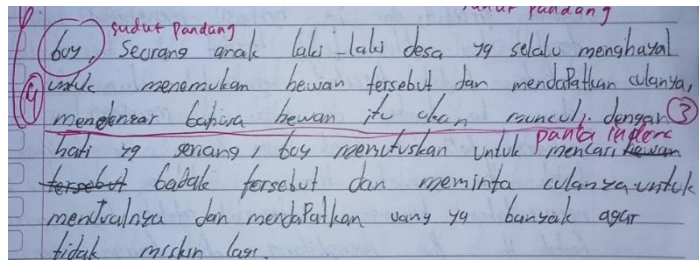 sudut pandang
boy, Seorang anak laki-laki desa yg selalu menghayal
untuk menemukan hewan tersebut dan mendapatkan culanya,
4 mendengar bahwa hewan itu akan muncul, dengan 3
panca indera
hati yg senang, boy memutuskan untuk mencari hewan
tersebut badak tersebut dan meminta culanya untuk
menjualnya dan mendapatkan uang yg banyak agar
tidak miskin lagi.